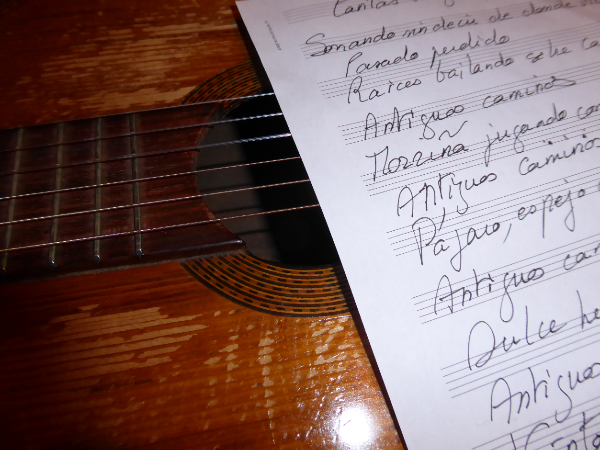 Cantas
Sonando sin decir de donde
Pasado perdido
Raices bailando sobre
Antiguos caminos
Morriña jugando con
Antiguos caminos
Pájaro, espejo
Antiguos
Dulce
Antiguos